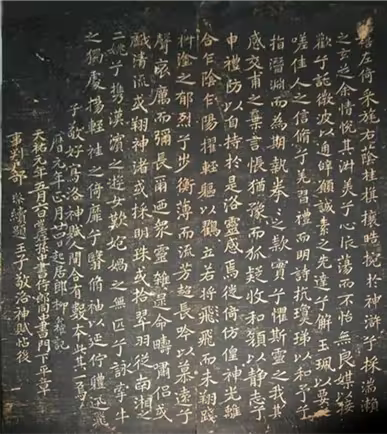 嬉左倚采旄右蔭桂旗攘皓腕於神滸兮采湍瀨
之玄芝余情悅其淑美兮心振蕩而不怡無良媒以接
歡兮託微波以通辭願誠素之先達兮解玉珮以要之
嗟佳人之信脩兮羌習禮而明詩抗瓊珶以和予兮
指潛淵而為期執拳拳之款實兮懼斯靈之我欺
感交甫之棄言悵猶豫而狐疑收和顏以靜志兮
申禮防以自持於是洛靈感焉徙倚仿偟神光離
合乍陰乍陽擢輕軀以鶴立若將飛而未翔踐
椒塗之郁烈兮步衡薄而流芳超長吟以慕遠兮
聲哀厲而彌長爾迺衆靈雜遝命疇嘯侶或
戲清流或翔神渚或採明珠或拾翠羽從南湘之
二妃兮攜漢濱之遊女歎匏媧之無匹兮詠牽牛
之獨處揚輕袿之倚靡兮翳脩袖以延佇體迅飛
子敬好寫洛神賦人間合有數本此其一焉寶
曆元年正月廿四日起居郎柳公權記
天祐元年五月六日堂姪孫中書侍郎同中書門下平章
事判吏部璨續題王子敬洛神賦帖後